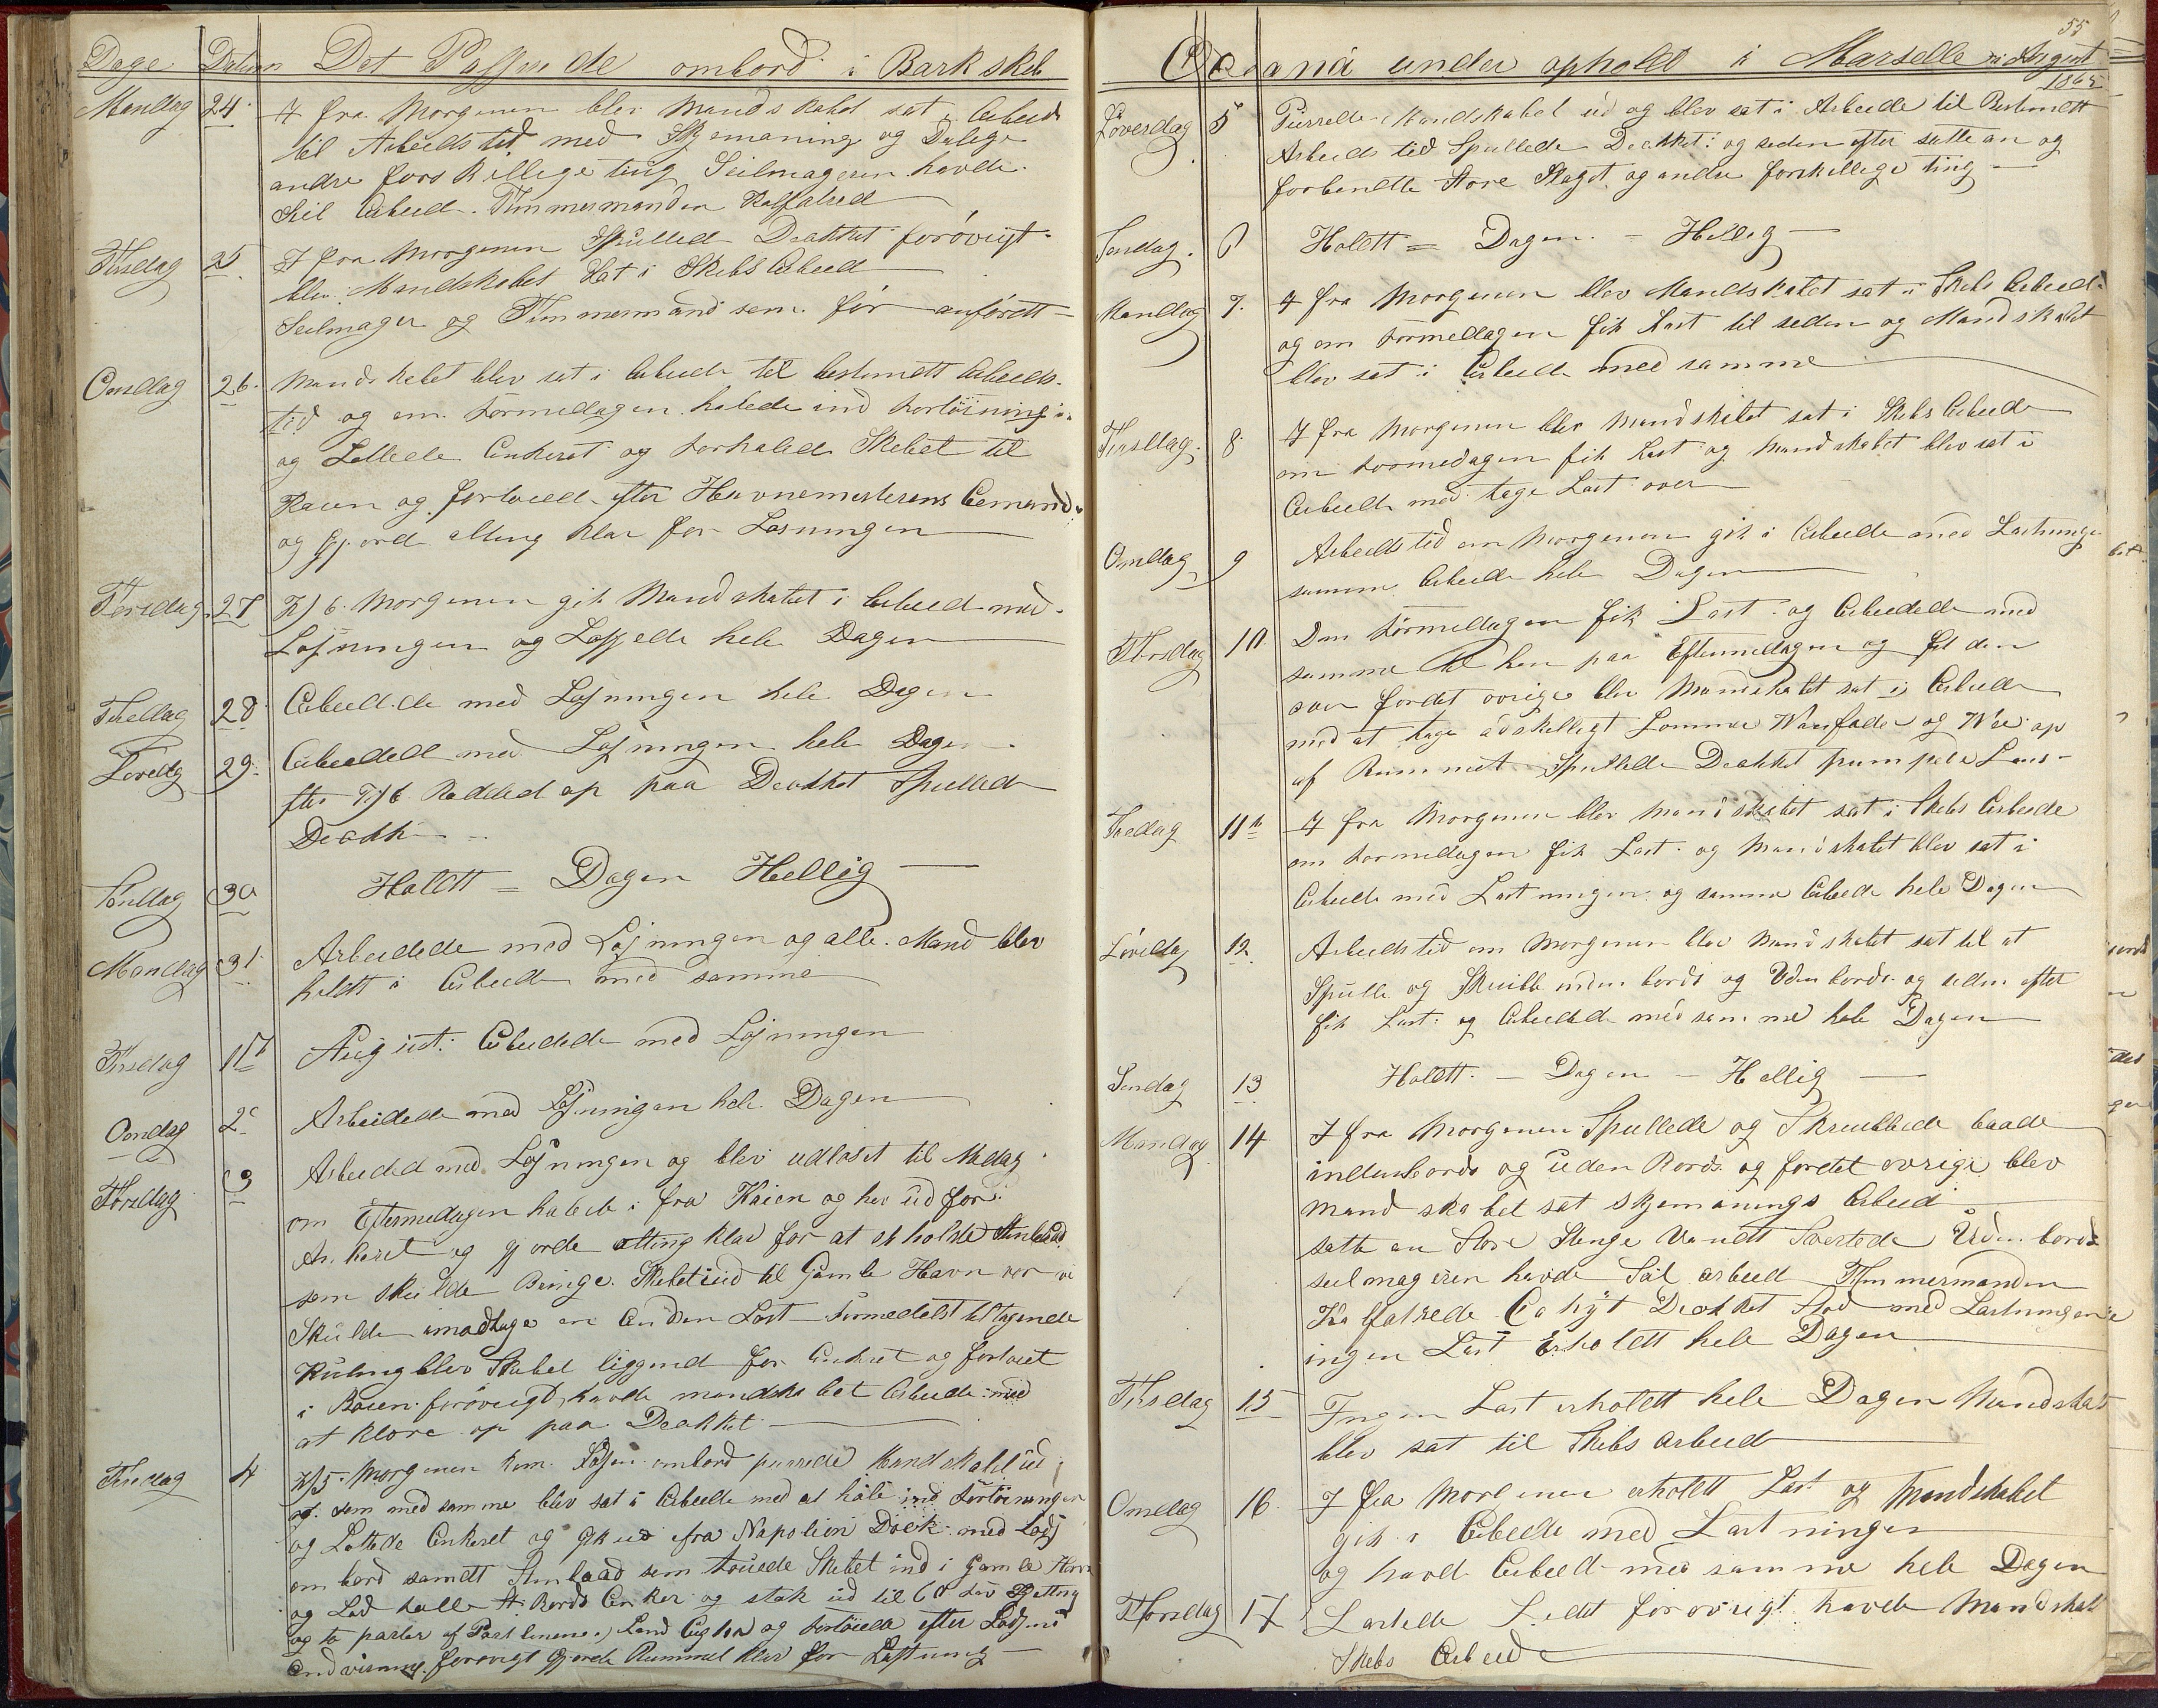 Dage Datum Det Passerede ombord i Bark skib
Mandag 24 I fra Morgenen blev Mandskabet sat i Arbeid
til Arbeidstid med Skjemaning og Dulege
andre forskellige ting Seilmageren havde
Seil Arbeid. Tømmermanden Kalfatred
Tirsdag 25 I fra Morgenen Spulled Deækket forøvrigt
blev Mandskabet Sat i Skibs Arbeid
Seilmager og Tømmermand som før anførett
Onsdag 26. Mandskabet blev sat i Arbeide til bestemett Arbeids-
tid og om Formedagen halede ind Fortøiningen
og Lettede Ankeret og Forhaled Skibet til
Kaien og fortøied efter Havnemesterens
og Gjord alting klar for Losningen
Torsdag 27 Kl 6 Morgenen gik Mandskabet i Arbeid med
Losningen og Lossede hele Dagen
Fredag 28 Arbeidede med Losningen hele Dagen
Lørdag 29 Arbeidede med Losningen hele Dagen
efter Kl 6 Reddede op paa Deækket Spulled
Deækk
Søndag 30 Holdtt = Dagen Hellig
Mandag 31 Arbeidede med Losningen og alle Mand blev
holdtt i Arbeide med samme
Tirsdag 1 August: Arbeidede med Losningen
Onsdag 2 Arbeidede med Losningen hele Dagen
Torsdag 3 Arbeided med Losningen og blev udloset til Medag
om Eftermedagen halede i fra Kaien og her ud for
Ankeret og gjorde alting klar for at
som skulde Bringe Skibet ind til Gamle Havn vor vi
Skulde imodtage en Anden Last Formedelst tiltagende
Kuling blev Skibet liggend for Ankeret og fortøiet
i Basen forøvrigt havde mandskabet Arbeide med
at klare op paa Deækket
Fredag 4 Kl 5 Morgenen kom Losen ombord purrede Mandskabet ud
og som med samme blev sat i Arbeide med at hale ind Fortøiningen
og Lettede Ankeret og gik ud fra Napolion Dock med Lods
om bord samtt som touede Skibet ind i Gamle Havn
og Lod falle Bords Anker og stak ud til 60 Fav Kjetting
og to parter af Land og Fortøiede efter Lodsens
Andvisning forøvrigt Gjorde Rummet klar for Lastning
55
Oceana under ophold i Marselle August
1865
Løverdag 5 Purrede Mandskabet ud og blev sat i Arbeide til Bestemett
Arbeids tid Spullede Deækket og seden efter satte an og
forbendte store Staget og andre forskellige ting
Søndag 6 Holdtt = Dagen - Hellig
Mandag 7. I fra Morgenen blev Mandskabet sat i Skibs Arbeid
og om Formedagen fik Last til seden og Mandskabet
blev sat i Arbeide med samme
Tirsdag 8 I fra Morgenen blev Mandskabet sat i Skibs Arbeide
om Formedagen fik Last og Mandskabet blev sat i
Arbeide med tage Last over
Onsdag 9 Arbeidstid om Morgenen gik i Arbeide med Lastningen
samme Arbeide hele Dagen
Torsdag 10 Den Formedagen fik Last og Arbeidede med
samme hen paa Eftermedagen og
fordet øvrige blev Mandskabet sat i Arbeide
med at tage adskelligt og op
af Rummet Spullede Deækket pumpede Lens
Fredag 11 I fra Morgenen blev Mandskabet sat i Skibs Arbeide
om Formedagen fik Last og Mandskabet blev sat i
Arbeide med Lastningen og samme Arbeide hele Dagen
Løverdag 12. Arbeidstid om Morgenen blev Mandskabet sat til at
Spulle og Skrubbe inden bords og Uden bords og seden efter
fik Last og Arbeided med samme hele Dagen
Søndag 13 Holdtt - Dagen - Hellig
Mandag 14 I fra Morgenen Spullede og Skrubbede baade
indenbords og uden Bords og fordet øvrige blev
mandskabet sat skjemanings Arbeid
satte an Store Stenge Vandtt Svertede Udenbords
seilmageren havde Seil arbeid Tømmermanden
Kalfatrede Deækket Stod med Lastningen
ingen Last Erholdtt hele Dagen
Tirsdag 15 Ingen Last erholdtt hele Dagen Mandskab
blev sat til Skibs arbeid
Onsdag 16 I fra Morgenen erholdtt Last og Mandskabet
gik i Arbeide med Lastningen
og havde Arbeid med samme hele Dagen
Torsdag 17 Lastede Lidet forøvrigt havde Mandskab
Skibs Arbeide